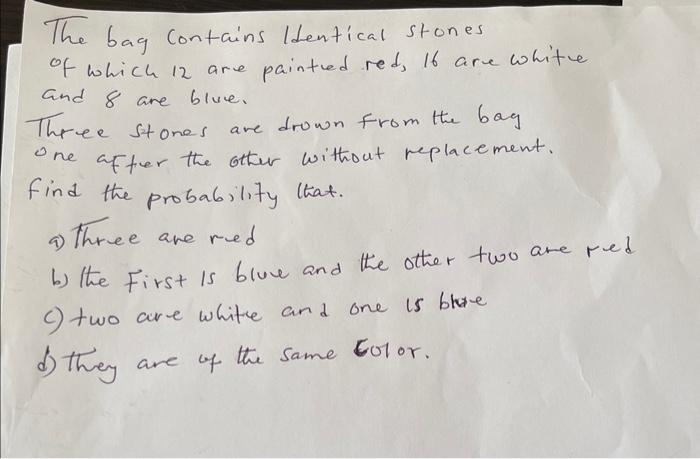 The bag Contains Identical stones
of which 12 are paintred red, 16 are whitre
and 8 are blue.
Three stones are drown from the bag
one after the other without replacement.
find the probability that.
a) Three are red
b) the First Is blue and the other two are red
c) two are white and one is blue
d) They are of the same Color.